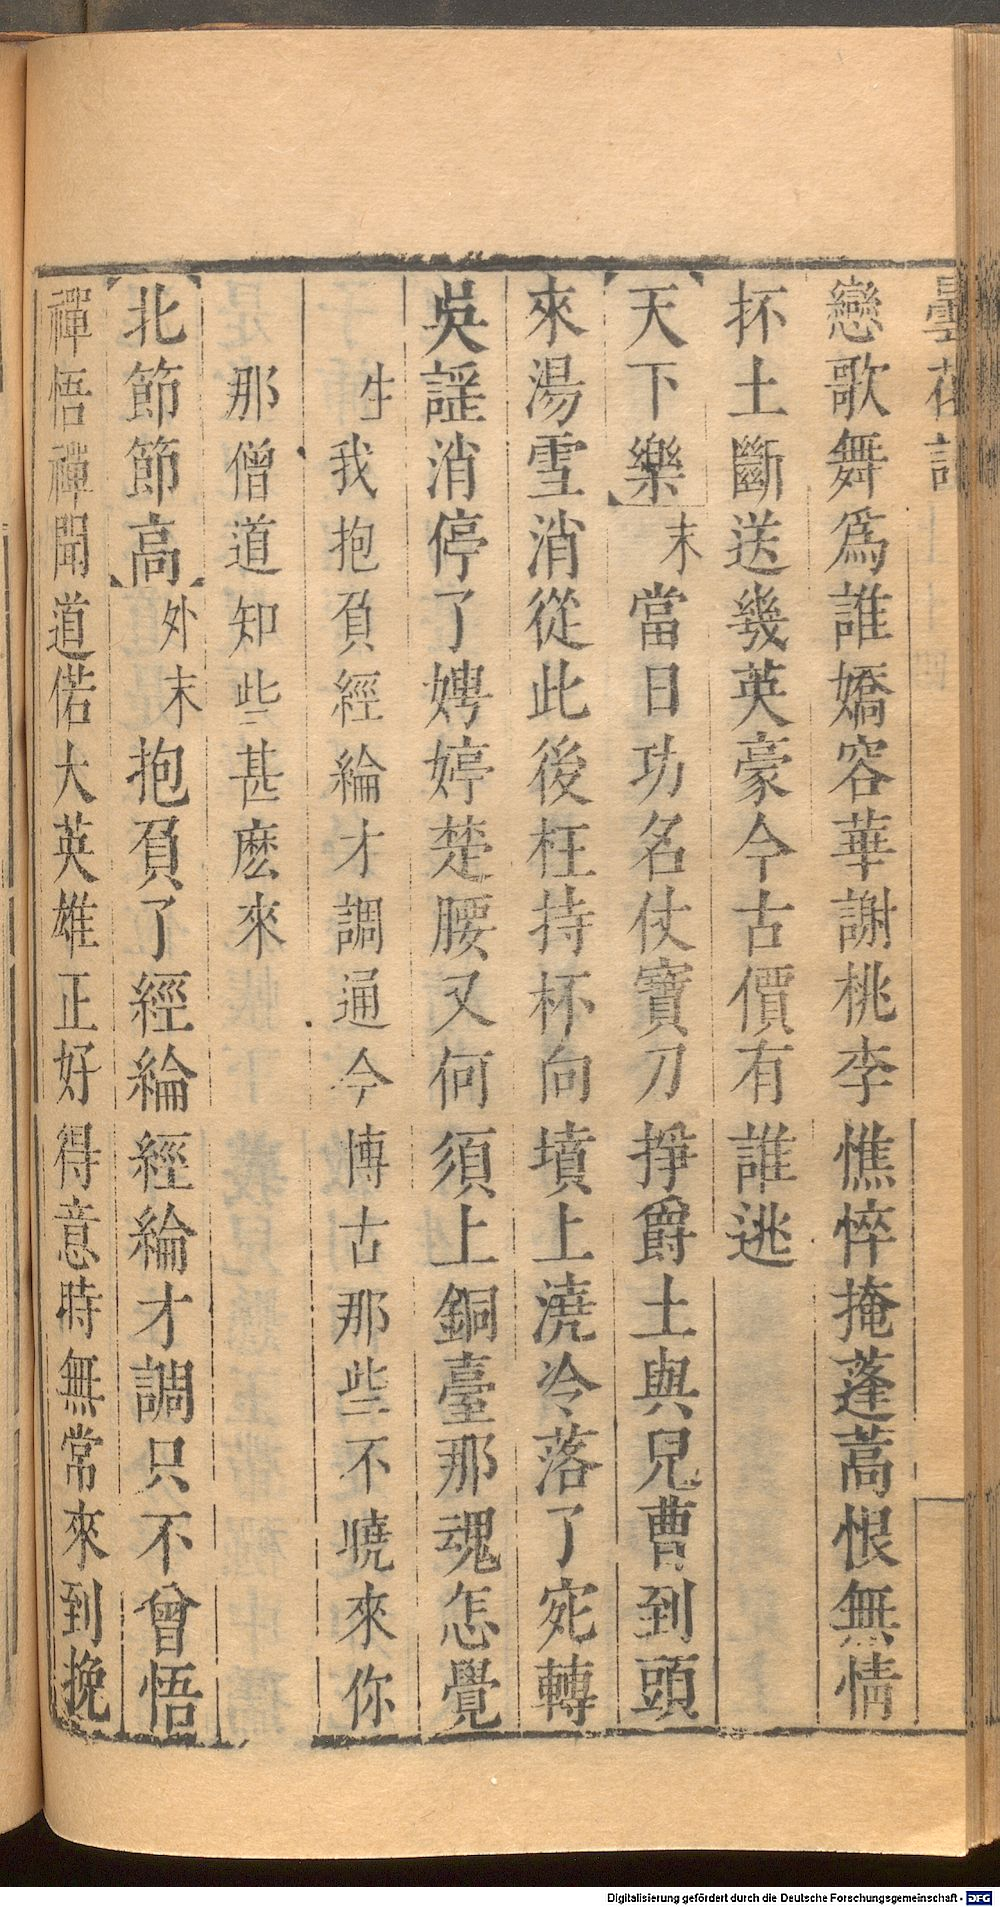 曇花記
戀歌舞爲誰嬌容華謝桃李憔悴掩蓬蒿恨無情
抔土斷送幾英豪今古價有誰逃
天下樂末當日功名仗寶刀掙爵土與兒曹到頭
來湯雪消從此後枉持杯向墳上澆冷落了宛轉
吳謳消停了娉婷楚腰又何須上銅臺那魂怎覺
生我抱負經綸才調通今博古那些不曉來你
那僧道知些甚麽來
北節節高外末抱負了經綸經綸才調只不曾悟
禪悟禪聞道偌大英雄正好得意時無常來到挽
Digitalisierung gefördert durch die Deutsche Forschungsgemeinschaft - DFG